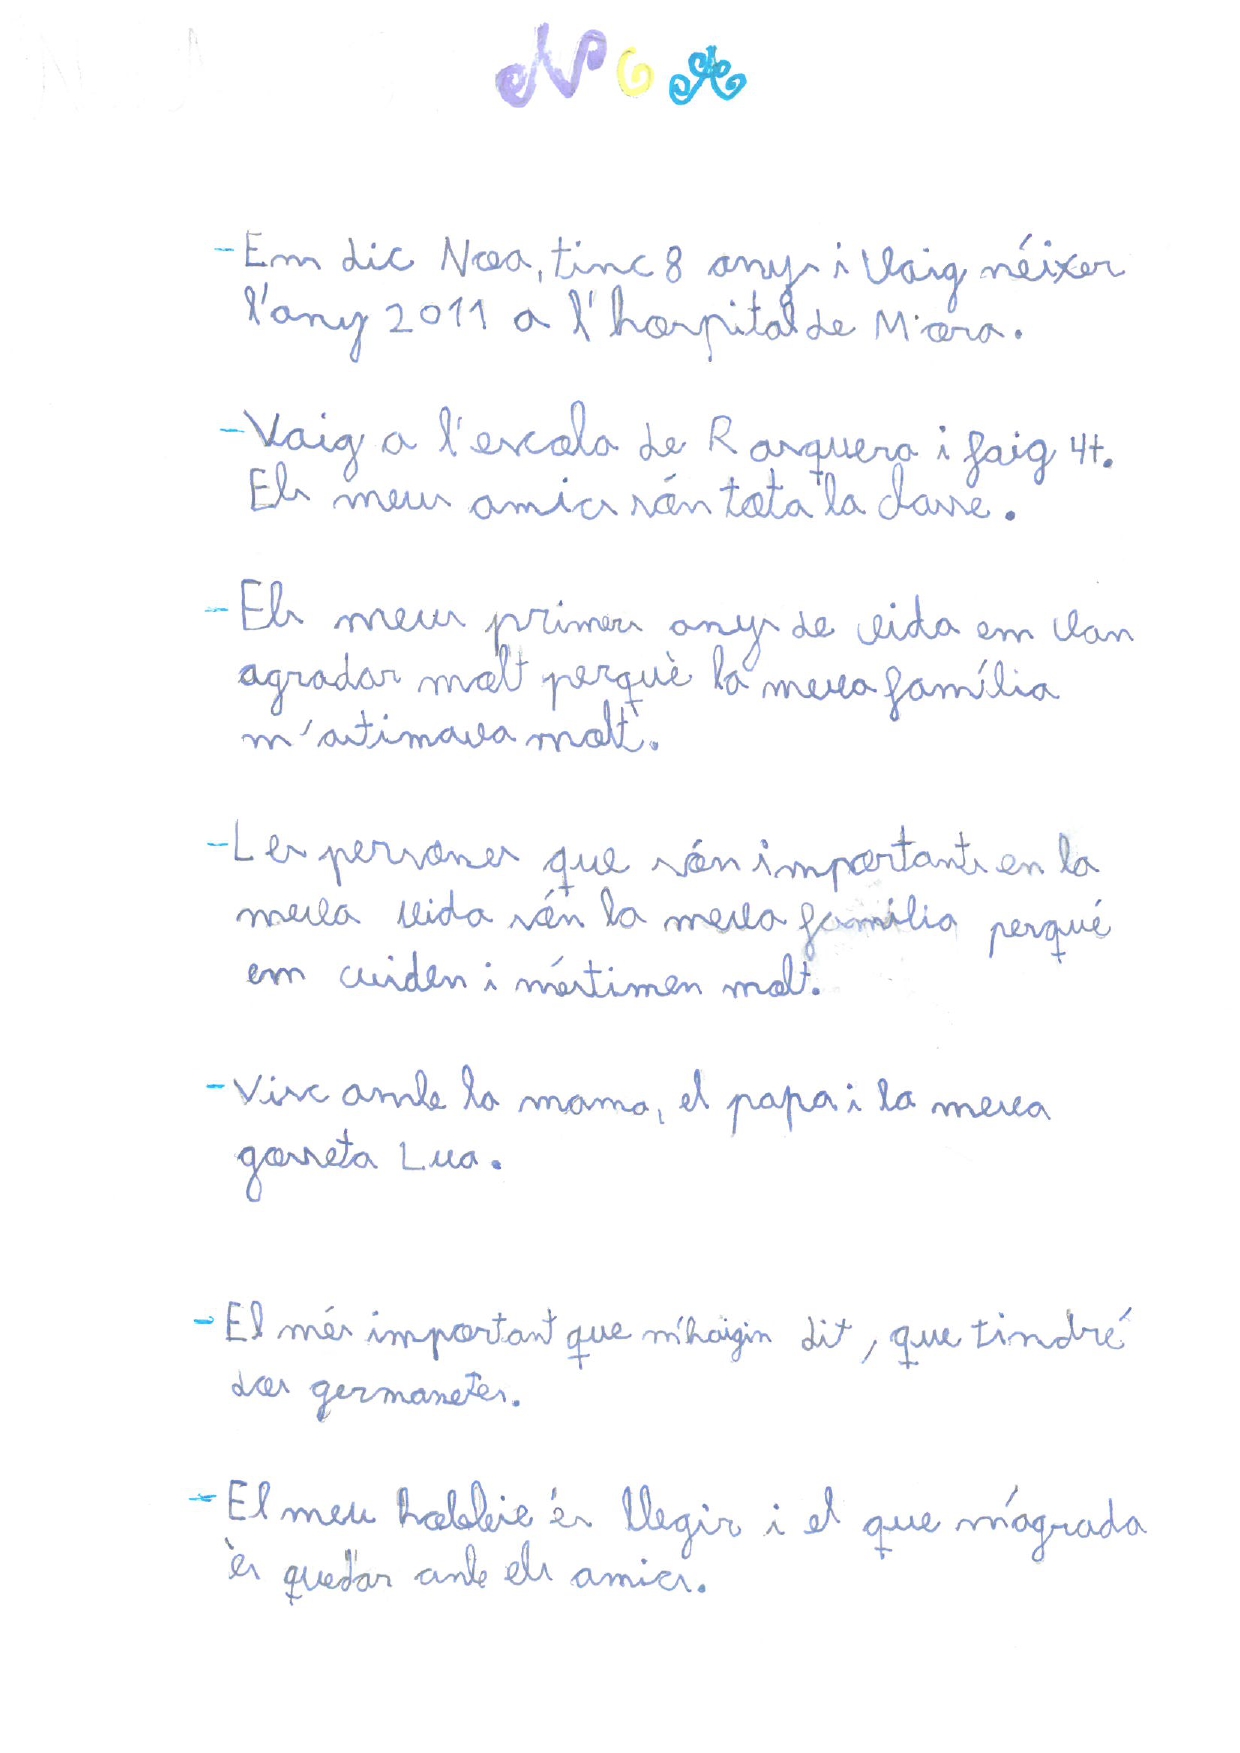 NOA
- Em dic Noa, tinc 8 anys i vaig néixer
l'any 2011 a l'hospital de Mora.
- Vaig a l'escola de Rasquera i faig 4t.
Els meus amics són tota la classe.
- Els meus primers anys de vida em van
agradar molt perquè la meva família
m'estimava molt.
- Les persones que són importants en la
meva vida són la meva família perqué
em cuiden i m'estimen molt.
- Visc amb la mama, el papa i la meva
gosseta Lua.
- El més important que m'haigin dit, que tindré
dos germanetes.
- El meu hobbie és llegir i el que m'agrada
ès quedar amb els amics.